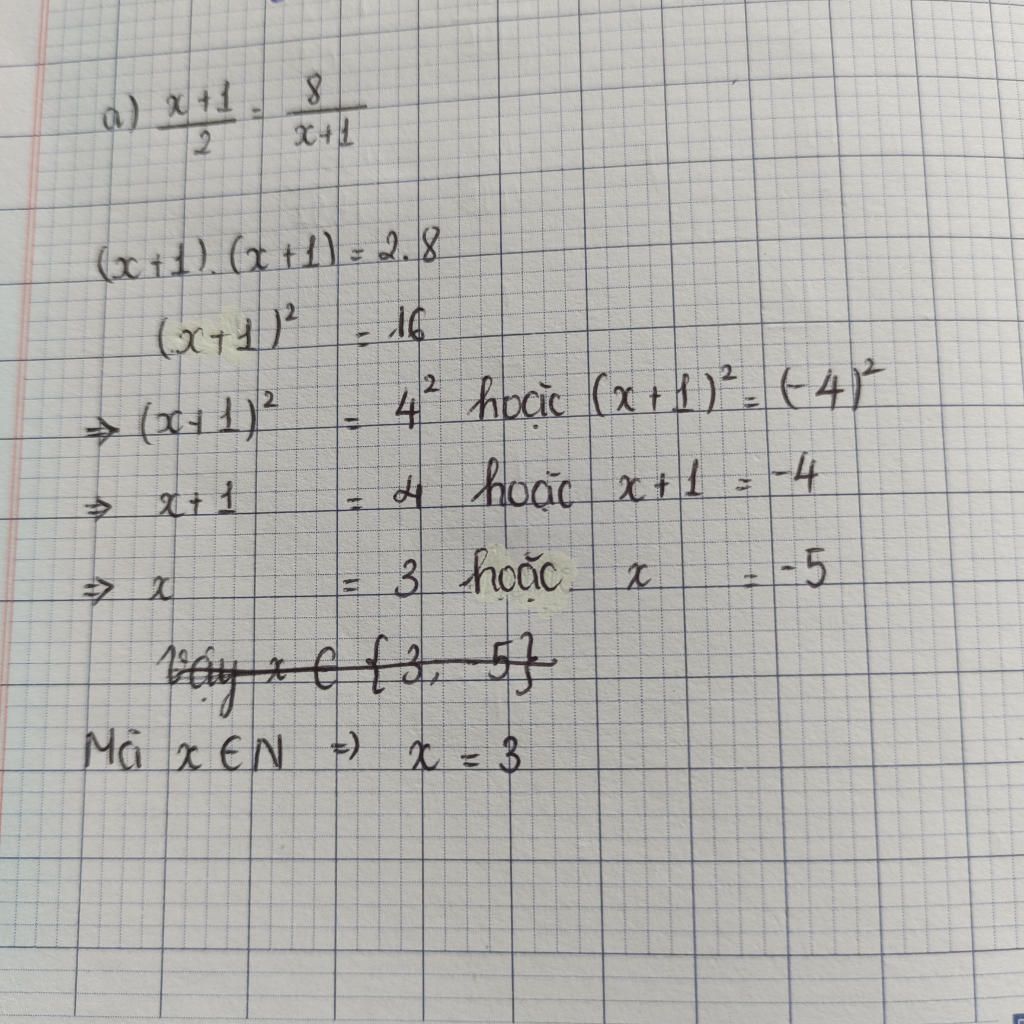 a) \frac{x+1}{2} = \frac{8}{x+1}
(x+1).(x+1) = 2.8
(x+1)² = 16
⇒ (x+1)² = 4² hoặc (x+1)² = (-4)²
⇒ x+1 = 4 hoặc x+1 = -4
⇒ x = 3 hoặc x = -5
Vậy x ∈ {3, -5}
Mà x ∈ N ⇒ x = 3